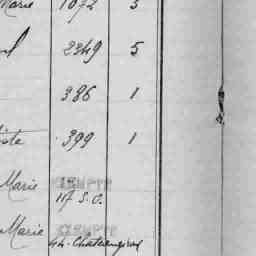 Marie 1072 5
2349 5
386 1
iste 399 1
Marie EXEMPTE
117 S.O.
Marie EXEMPTE
44. Chateaugiron